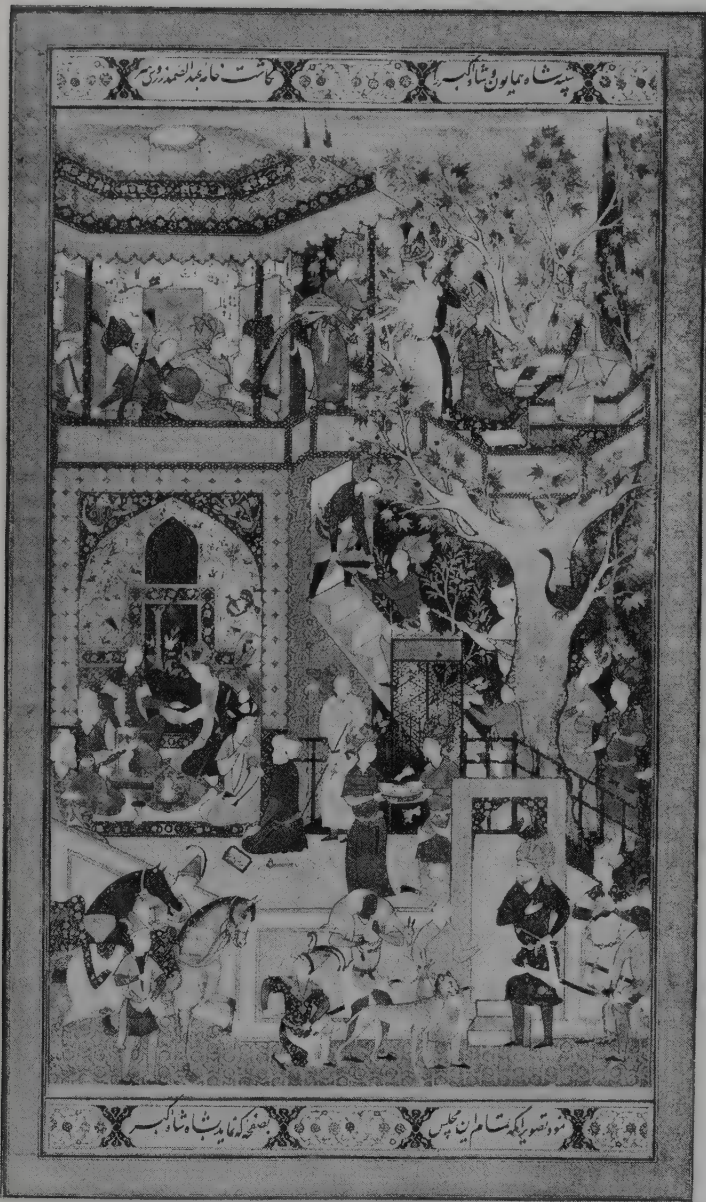 شبیه شاه همایون و شاه اکبر را نگاشت خامه عبدالصمد زروی
نمود تصویر ان مجلس بصفحه که نماید بشاه شاه اکبر